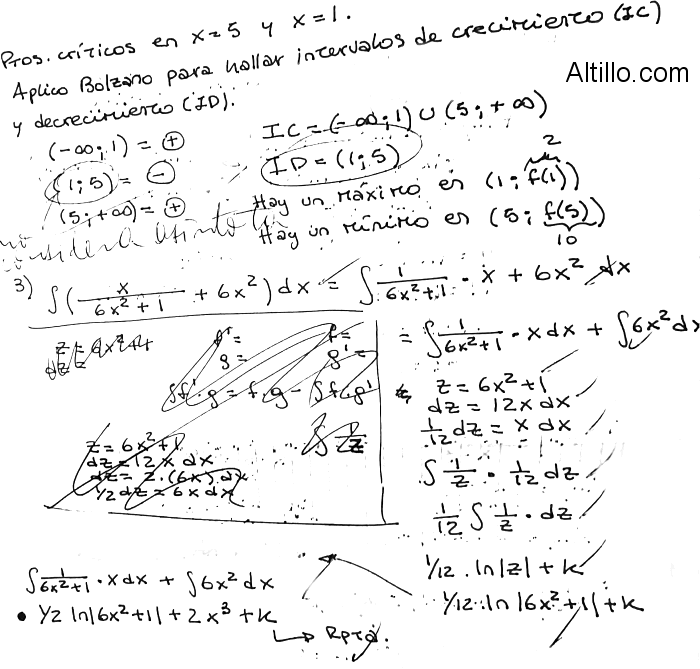 Ptos. críticos en x=5 y x=1.
Aplico Bolzano para hallar intervalos de crecimiento (IC)
y decrecimiento (ID).
Altillo.com
(-∞;1) = ⊕
(1;5) = ⊖
(5;+∞) = ⊕
IC = (-∞;1) ∪ (5;+∞)
ID = (1;5)
Hay un máximo en (1; f(1))
2
Hay un mínimo en (5; f(5))
10
no
considera
3) ∫(x/(6x²+1) + 6x²) dx = ∫ 1/(6x²+1) · x + 6x² dx
= ∫ 1/(6x²+1) · x dx + ∫6x² dx
z = 6x²+1
dz = 12x dx
1/12 dz = x dx
∫ 1/z · 1/12 dz
1/12 ∫ 1/z · dz
1/12 · ln|z| + k
1/12 · ln|6x²+1| + k
f' =
g =
f =
g' =
∫f'·g = f·g - ∫f·g'
z = 6x²+1
dz = 12x dx
dz = 2·(6x) dx
1/2 dz = 6x dx
∫ 1/(6x²+1) · x dx + ∫6x² dx
• 1/2 ln|6x²+1| + 2x³ + k
↳ Rpta.